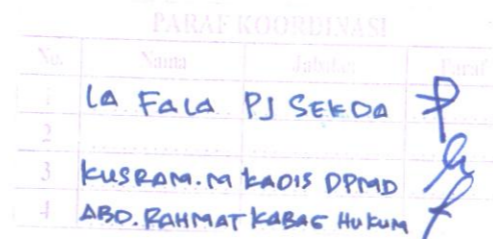 PARAF KOORDINASI
No. Nama Jabatan Paraf
1 LA FALA PJ SEKDA
2
3 KUSRAM.M KADIS DPMD
4 ABD. RAHMAT KABAG HUKUM